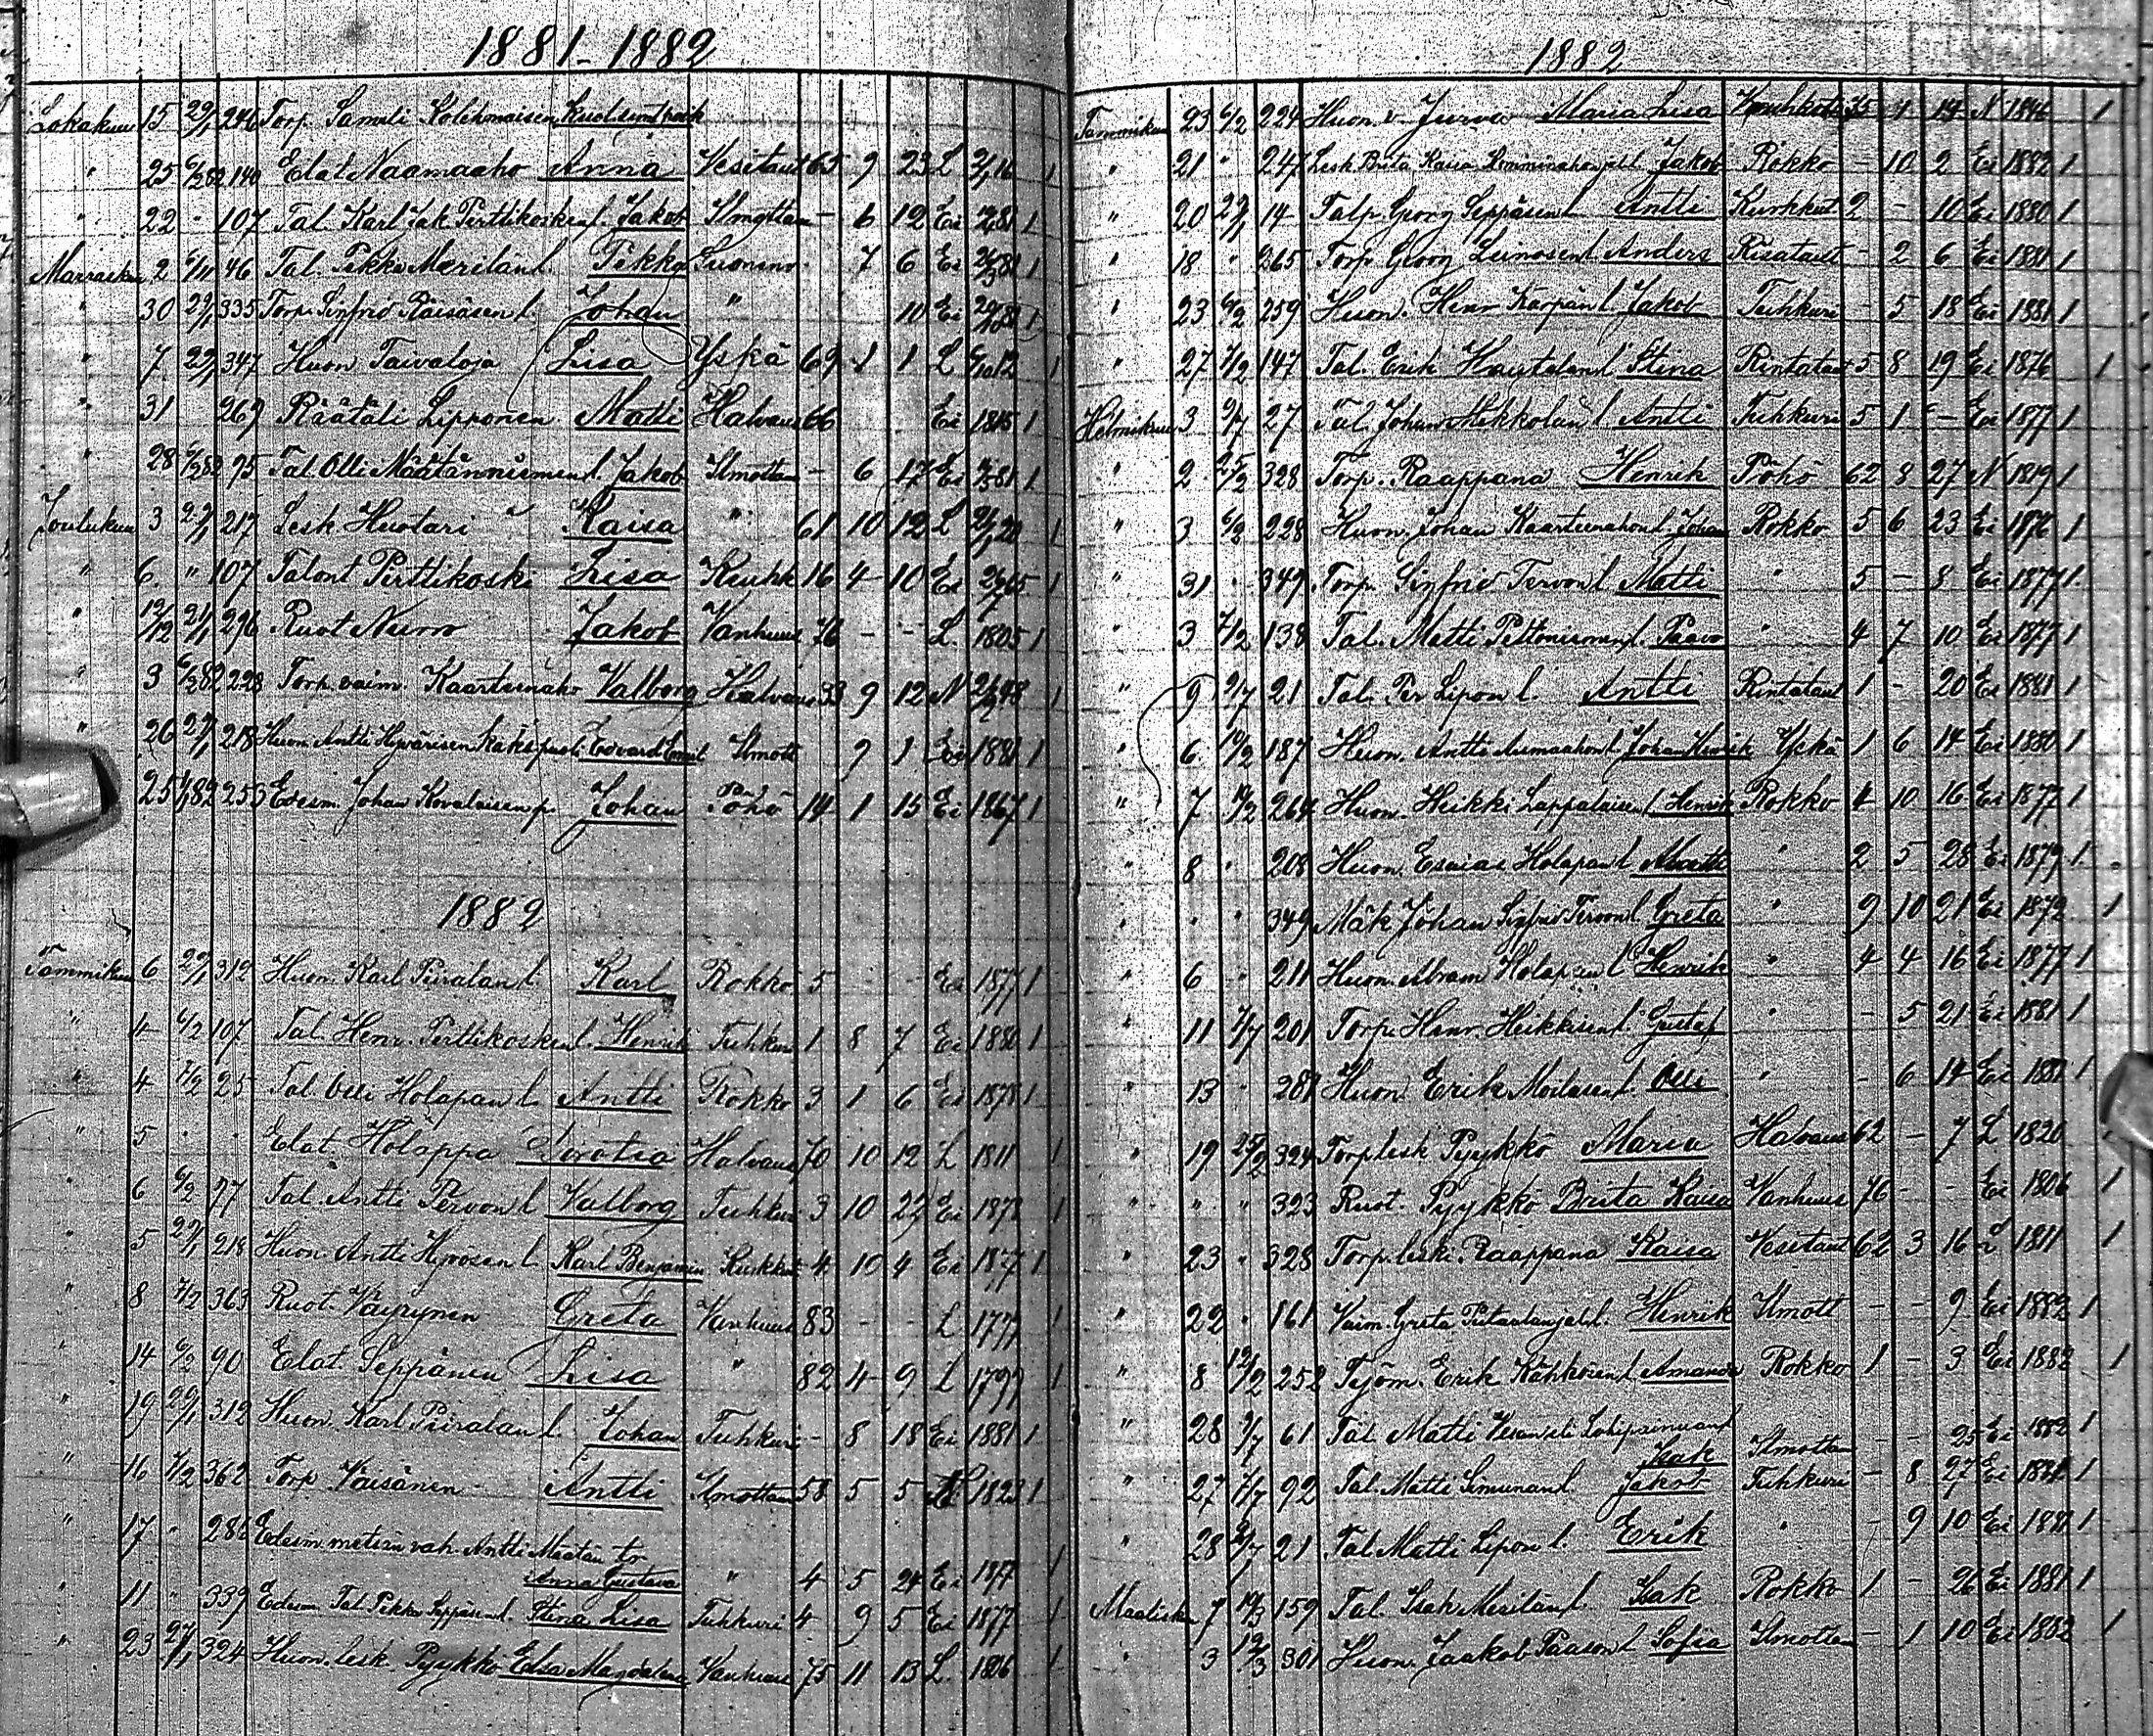 1881-1882
Lokakuu 15 29/1 246 Torp. Samuli Kolehmaisen Kuolluntrook
" 25 6/2 82 140 Elat. Naamaaho Anna Vesitaut 65 9 23 L 2/1 16 1
" 22 " 107 Tal. Karl Jak Perttikosken l. Jakob Ilmottam - 6 12 Ei 81 1
Marrasku 2 6/11 46 Tal. Pekka Merilän l. Pekka Luonino 7 6 Ei 81 1
" 30 29/1 335 Torp. Sigfrid Räisäsen l. Johan " 10 Ei 81 1
" 7 29/1 347 Huon. Taivaloja Lisa Yskä 69 1 1 L 12 1
" 31 269 Räätäli Lipponen Matti Halvaus 66 Ei 1815 1
" 28 6/2 82 95 Tal. Olli Määtänniemen l. Jakob Ilmottam - 6 17 Ei 81 1
Joulukuu 3 29/1 217 Lesk. Huotari Kaisa " 61 10 12 L 20 1
" 6 " 107 Talont Perttikoski Lisa Keuhk 16 4 10 Ei 65 1
" 12/12 29/1 296 Ruot. Nurro Jakob Vanhuus 76 - - L 1805 1
" 3 6/2 82 228 Torp. vaim. Kaarteenaho Valborg Halvaus 33 9 12 N 48 1
" 26 29/1 218 Huon. Antti Hyvärisen kaksipuoli Edvard Emil Ilmott 9 1 Ei 1881 1
" 25 82 253 Edesm. Johan Kovalaisen p. Johan Pöhö 14 1 15 Ei 1867 1
1882
Tammikuu 6 29/1 312 Huon. Karl Piiralan l. Karl Rokko 5 - - Ei 1877 1
" 4 6/2 107 Tal. Henr. Perttikosken l. Henrik Tuhkur 1 8 7 Ei 1880 1
" 4 7/2 25 Tal. Olli Holapan l. Antti Rokko 3 1 6 Ei 1878 1
" 5 " " Elat. Holappa Dorotea Halvaus 70 10 12 L 1811 1
" 6 6/2 77 Tal. Antti Tervon l. Valborg Tuhkur 3 10 22 Ei 1878 1
" 5 29/1 218 Huon. Antti Hyvösen l. Karl Benjamin Kurkkut 4 10 4 Ei 1877 1
" 8 7/2 363 Ruot. Väyrynen Greta Vanhuus 83 - - L 1777 1
" 14 6/2 90 Elat. Seppänen Lisa " 82 4 9 L 1799 1
" 19 29/1 312 Huon. Karl Piiralan l. Johan Tuhkuri - 8 18 Ei 1881 1
" 16 7/2 362 Torp. Väisänen Antti Ilmottam 58 5 5 N 1823 1
" 17 " 286 Edesm. metsän vah. Antti Määtän tr
Anna Gustava " 4 5 24 Ei 1877 1
" 11 " 339 Edesm. Tal. Pekka Seppäsen l. Stina Lisa Tuhkuri 4 9 5 Ei 1877 1
" 23 29/1 324 Huon. lesk. Pyykkö Edsa Magdalena Vanhuus 75 11 13 L 1806 1
1882
Tammikuu 23 6/2 224 Huon. v. Jurva Maria Lisa Keuhkota 35 1 14 N 1846 1
" 21 " 247 Lesk. Brita Kaisa Komminahon l. Jakob Rokko - 10 2 Ei 1882 1
" 20 29/1 14 Talp. Georg Seppäsen l. Antti Kurkkut 2 - 10 Ei 1880 1
" 18 " 265 Torp. Georg Leinosen l. Anders Risataut - 2 6 Ei 1881 1
" 23 6/2 259 Huon. Henr. Karpän l. Jakob Tuhkuri - 5 18 Ei 1881 1
" 27 7/2 147 Tal. Erik Hautalan l. Stina Rintataut 5 8 19 Ei 1876 1
Helmikuu 3 9/7 27 Tal. Johan Mikkolan l. Antti Tuhkuri 5 1 - Ei 1877 1
" 2 25/2 328 Torp. Raappana Henrik Pöhö 62 8 27 N 1819 1
" 3 6/2 228 Huon. Johan Kaarteenahon l. Johan Rokko 5 6 23 Ei 1876 1
" 31 " 349 Torp. Sigfrid Tervon l. Matti " 5 - 8 Ei 1877 1
" 3 7/2 138 Tal. Matti Peltoniemen l. Paavo " 4 7 10 Ei 1877 1
" 9 9/7 21 Tal. Per Lipon l. Antti Rintataut 1 - 20 Ei 1881 1
" 6 19/2 187 Huon. Antti Aumaahon l. Johan Henrik Yskä 1 6 14 Ei 1880 1
" 7 19/2 264 Huon. Heikki Lappalaisen l. Henrik Rokko 4 10 16 Ei 1877 1
" 8 " 208 Huon. Esaias Holapan l. " 2 5 28 Ei 1879 1
" " " 349 Mäk. Johan Sigfrid Tervon l. Greta " 9 10 21 Ei 1872 1
" 6 " 211 Huon. Abram Holapan l. Henrik " 4 4 16 Ei 1877 1
" 11 7/7 201 Torp. Henr. Heikkisen l. Gustaf " - 5 21 Ei 1881 1
" 13 " 281 Huon. Erik Moilasen l. Olli " - 6 14 Ei 1881 1
" 19 25/2 324 Torp. lesk. Pyykkö Maria Halvaus 62 - 7 L 1820 1
" " " 323 Ruot. Pyykkö Brita Kaisa Vanhuus 76 - - Ei 1806 1
" 23 " 328 Torp. leski Raappana Kaisa Vesitaut 62 3 16 L 1811 1
" 22 " 161 Vaim. Greta l. Henrik Ilmott - - 9 Ei 1882 1
" 8 12/2 252 Työm. Erik Kähkösen l. Amanda Rokko 1 - 3 Ei 1882 1
" 28 9/7 61 Tal. Matti
Isak Ilmottam - - 25 Ei 1882 1
" 27 7/7 92 Tal. Matti Simunan l. Jakob Tuhkuri - 8 27 Ei 1881 1
" 28 9/7 21 Tal. Matti Lipon l. Erik " - 9 10 Ei 1881 1
Maalisku 7 19/3 159 Tal. Isak Merilän l. Isak Rokko 1 - 26 Ei 1881 1
" 3 12/3 301 Huon. Jaakob Paason l. Sofia Ilmottam - 1 10 Ei 1882 1